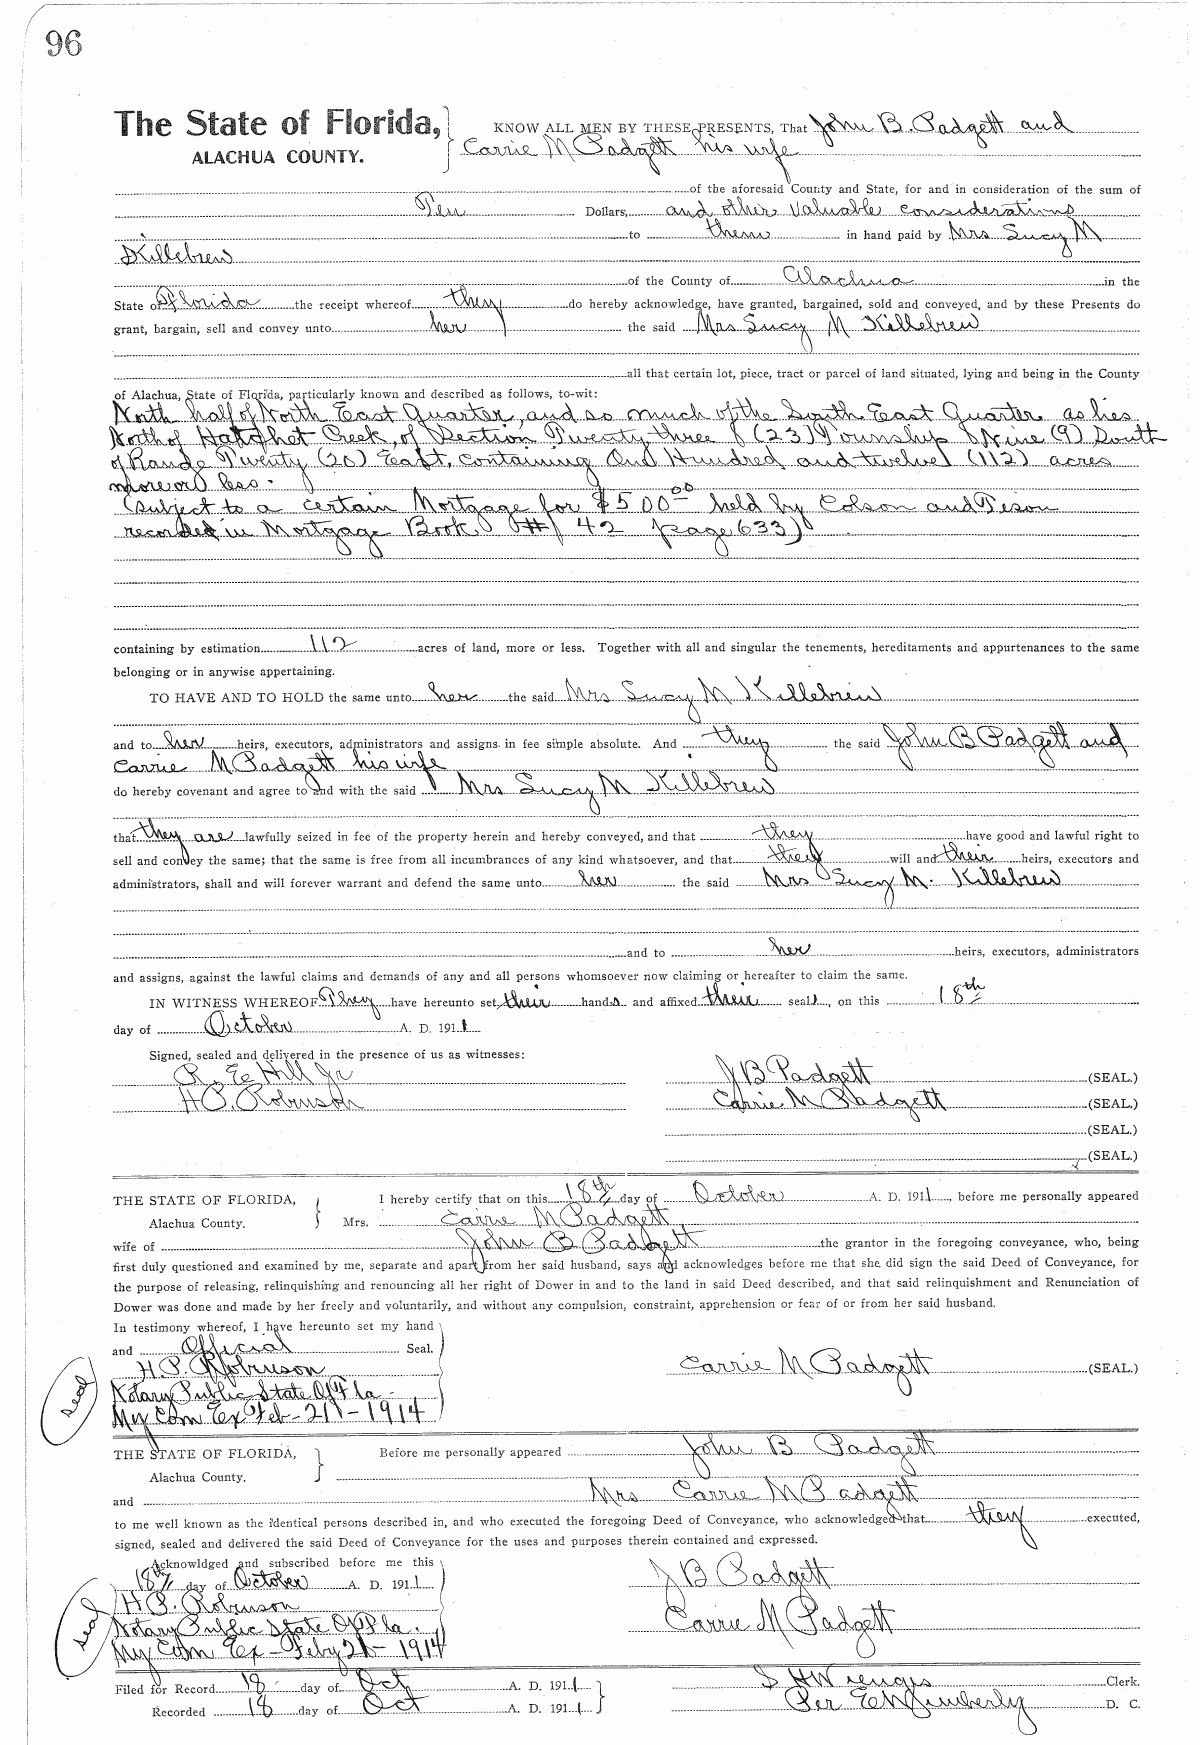 96
The State of Florida,
ALACHUA COUNTY.
KNOW ALL MEN BY THESE PRESENTS, That John B. Padgett and
Carrie M Padgett his wife
of the aforesaid County and State, for and in consideration of the sum of
Ten Dollars, and other valuable considerations
to them in hand paid by Mrs Lucy M
Killebrew
of the County of Alachua in the
State of Florida the receipt whereof they do hereby acknowledge, have granted, bargained, sold and conveyed, and by these Presents do
grant, bargain, sell and convey unto her the said Mrs Lucy M Killebrew
all that certain lot, piece, tract or parcel of land situated, lying and being in the County
of Alachua, State of Florida, particularly known and described as follows, to-wit:
North half of North East Quarter, and so much of the South East Quarter as lies
North of Hatchet Creek, of Section Twenty three (23) Township Nine (9) South
of Range Twenty (20) East, containing One Hundred and twelve (112) acres
more or less.
(subject to a certain Mortgage for $500.00 held by Colson and Teson
recorded in Mortgage Book # 42 page 633)
containing by estimation 112 acres of land, more or less. Together with all and singular the tenements, hereditaments and appurtenances to the same
belonging or in anywise appertaining.
TO HAVE AND TO HOLD the same unto her the said Mrs Lucy M Killebrew
and to her heirs, executors, administrators and assigns in fee simple absolute. And they the said John B Padgett and
Carrie M Padgett his wife
do hereby covenant and agree to and with the said Mrs Lucy M Killebrew
that they are lawfully seized in fee of the property herein and hereby conveyed, and that they have good and lawful right to
sell and convey the same; that the same is free from all incumbrances of any kind whatsoever, and that they will and their heirs, executors and
administrators, shall and will forever warrant and defend the same unto her the said Mrs Lucy M. Killebrew
and to her heirs, executors, administrators
and assigns, against the lawful claims and demands of any and all persons whomsoever now claiming or hereafter to claim the same.
IN WITNESS WHEREOF They have hereunto set their hands and affixed their seals, on this 18th
day of October A. D. 1911
Signed, sealed and delivered in the presence of us as witnesses:
R. E Hill Jr J B Padgett (SEAL.)
H P. Robinson Carrie M Padgett (SEAL.)
(SEAL.)
(SEAL.)
THE STATE OF FLORIDA, I hereby certify that on this 18th day of October A. D. 1911, before me personally appeared
Alachua County. Mrs. Carrie M Padgett
wife of John B Padgett the grantor in the foregoing conveyance, who, being
first duly questioned and examined by me, separate and apart from her said husband, says and acknowledges before me that she did sign the said Deed of Conveyance, for
the purpose of releasing, relinquishing and renouncing all her right of Dower in and to the land in said Deed described, and that said relinquishment and Renunciation of
Dower was done and made by her freely and voluntarily, and without any compulsion, constraint, apprehension or fear of or from her said husband.
In testimony whereof, I have hereunto set my hand
and Official Seal.
H. P. Robinson Carrie M Padgett (SEAL.)
seal Notary Public State Of Fla -
My Com Ex Feb - 21 - 1914
THE STATE OF FLORIDA, Before me personally appeared John B Padgett
Alachua County.
and Mrs Carrie M Padgett
to me well known as the identical persons described in, and who executed the foregoing Deed of Conveyance, who acknowledged that they executed,
signed, sealed and delivered the said Deed of Conveyance for the uses and purposes therein contained and expressed.
Acknowldged and subscribed before me this
18th day of October A. D. 1911 J B Padgett
H P. Robinson
seal Notary Public State Of Fla. Carrie M Padgett
My Com Ex - Feby 21 - 1914
Filed for Record 18 day of Oct A. D. 1911 S H Wienges Clerk.
Recorded 18 day of Oct A. D. 1911 Per E Wimberly D. C.